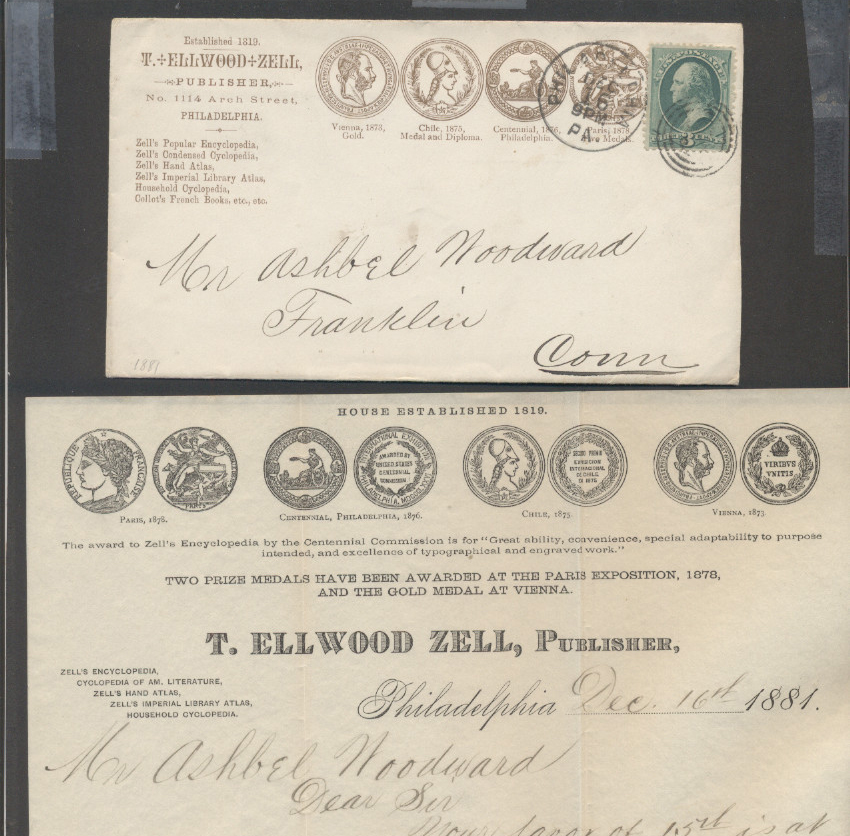 Established 1819.
T. ELLWOOD ZELL,
PUBLISHER,
No. 1114 Arch Street,
PHILADELPHIA.
Zell's Popular Encyclopedia,
Zell's Condensed Cyclopedia,
Zell's Hand Atlas,
Zell's Imperial Library Atlas,
Household Cyclopedia,
Collot's French Books, etc., etc.
Vienna, 1873,
Gold.
Chile, 1875,
Medal and Diploma.
Centennial, 1876,
Philadelphia.
Paris, 1878
Two Medals.
PHILADELPHIA
8PM
PA.
3
Mr Ashbel Woodward
Franklin
Conn
1881
HOUSE ESTABLISHED 1819.
REPUBLIQUE FRANÇAISE
PARIS
INTERNATIONAL EXHIBITION
PHILADELPHIA, MDCCCLXXVI
AWARDED BY
UNITED STATES
CENTENNIAL
COMMISSION
SECOND PREMIO
INTERNACIONAL
DE CHILE
DE 1875
VIRIBVS
VNITIS
PARIS, 1878.
CENTENNIAL, PHILADELPHIA, 1876.
CHILE, 1875.
VIENNA, 1873.
The award to Zell's Encyclopedia by the Centennial Commission is for "Great ability, convenience, special adaptability to purpose
intended, and excellence of typographical and engraved work."
TWO PRIZE MEDALS HAVE BEEN AWARDED AT THE PARIS EXPOSITION, 1878,
AND THE GOLD MEDAL AT VIENNA.
T. ELLWOOD ZELL, PUBLISHER,
ZELL'S ENCYCLOPEDIA,
CYCLOPEDIA OF AM. LITERATURE,
ZELL'S HAND ATLAS,
ZELL'S IMPERIAL LIBRARY ATLAS,
HOUSEHOLD CYCLOPEDIA.
Philadelphia Dec. 16th 1881.
Mr Ashbel Woodward
Dear Sir
Your favor of 15th is at